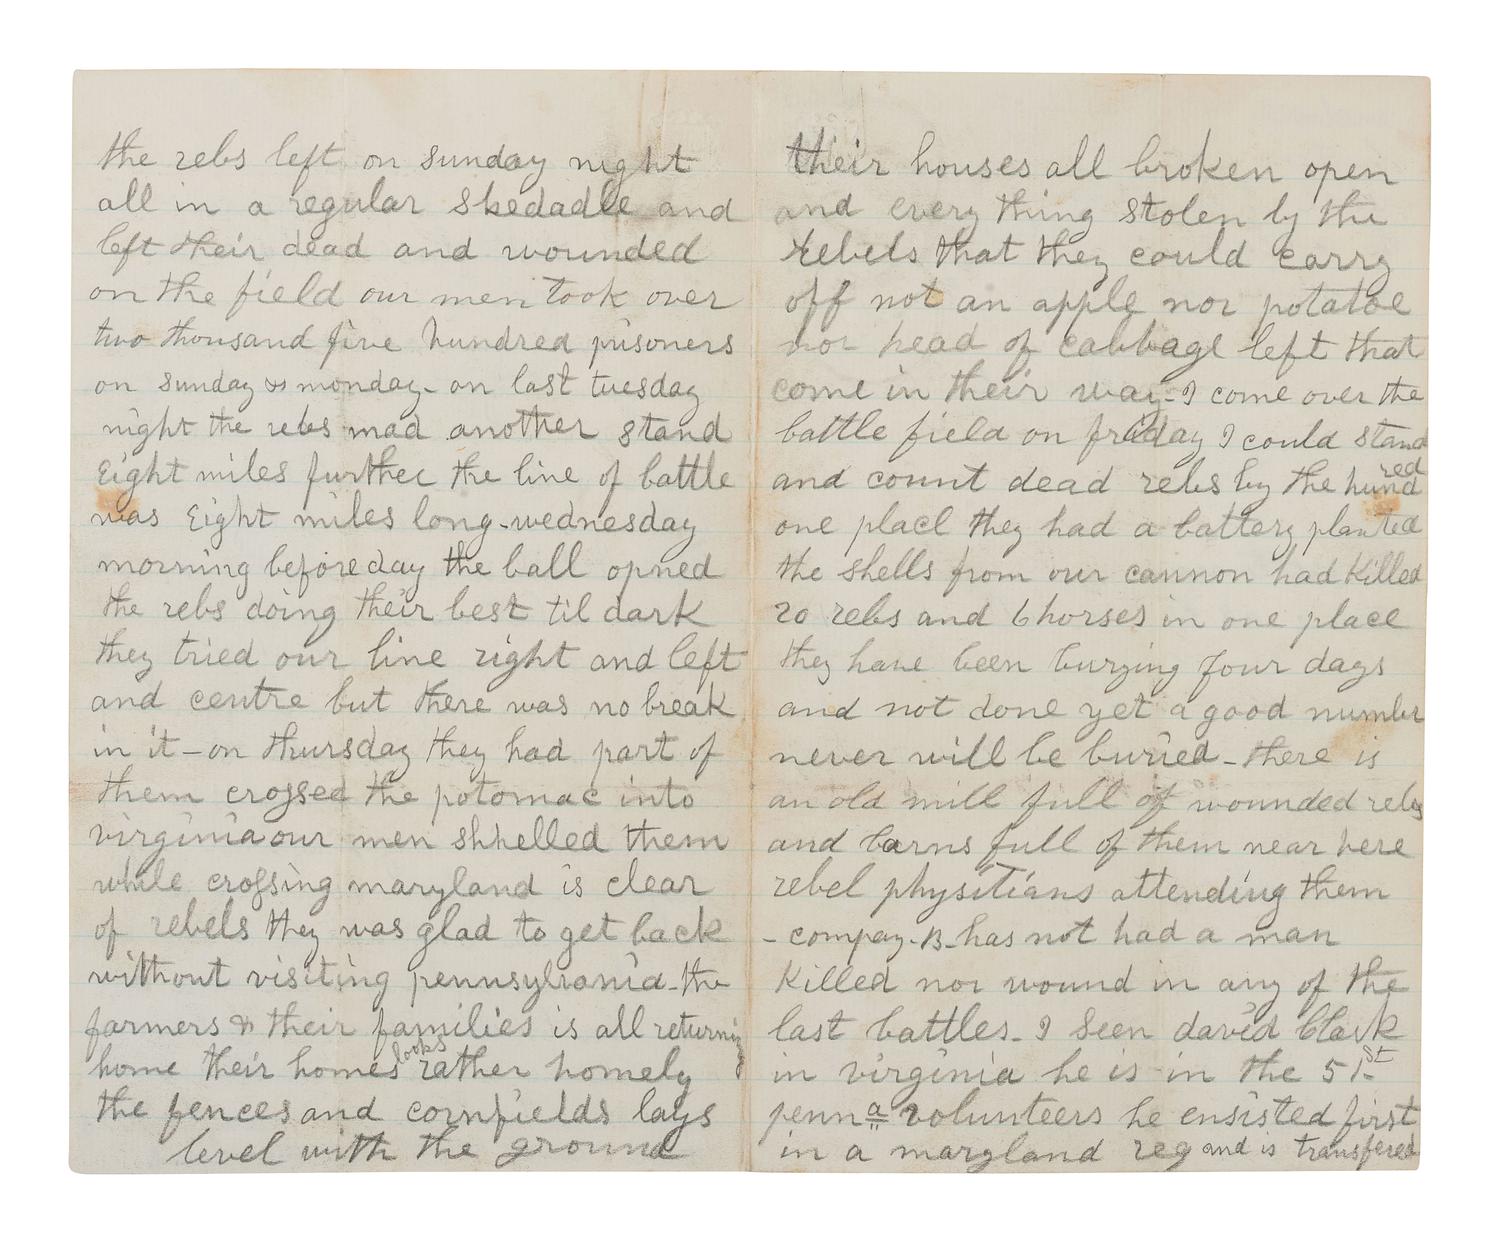 the rebs left on sunday night
all in a regular skedadle and
left their dead and wounded
on the field our men took over
two thousand five hundred prisoners
on sunday & monday - on last tuesday
night the rebs mad another stand
Eight miles further the line of battle
was Eight miles long - wednesday
morning before day the ball opned
the rebs doing their best til dark
they tried our line right and left
and centre but there was no break
in it - on thursday they had part of
them crossed the potomac into
virginia our men shhelled them
while crossing maryland is clear
of rebels they was glad to get back
without visiting pennsylvania - the
farmers & their families is all returning
home their homes looks rather homely
the fences and cornfields lays
level with the ground
their houses all broken open
and every thing stolen by the
rebels that they could carry
off not an apple nor potatoe
nor head of cabbage left that
come in their way - I come over the
battle field on friday I could stand
and count dead rebs by the hundred
one place they had a battery planted
the shells from our cannon had killed
20 rebs and 6 horses in one place
they have been burying four days
and not done yet a good number
never will be buried - there is
an old mill full of wounded rebs
and barns full of them near here
rebel physitians attending them
- compay - B - has not had a man
killed nor wound in any of the
last battles - I seen david Clark
in virginia he is in the 51st
penna volunteers he ensisted first
in a maryland reg and is transfered